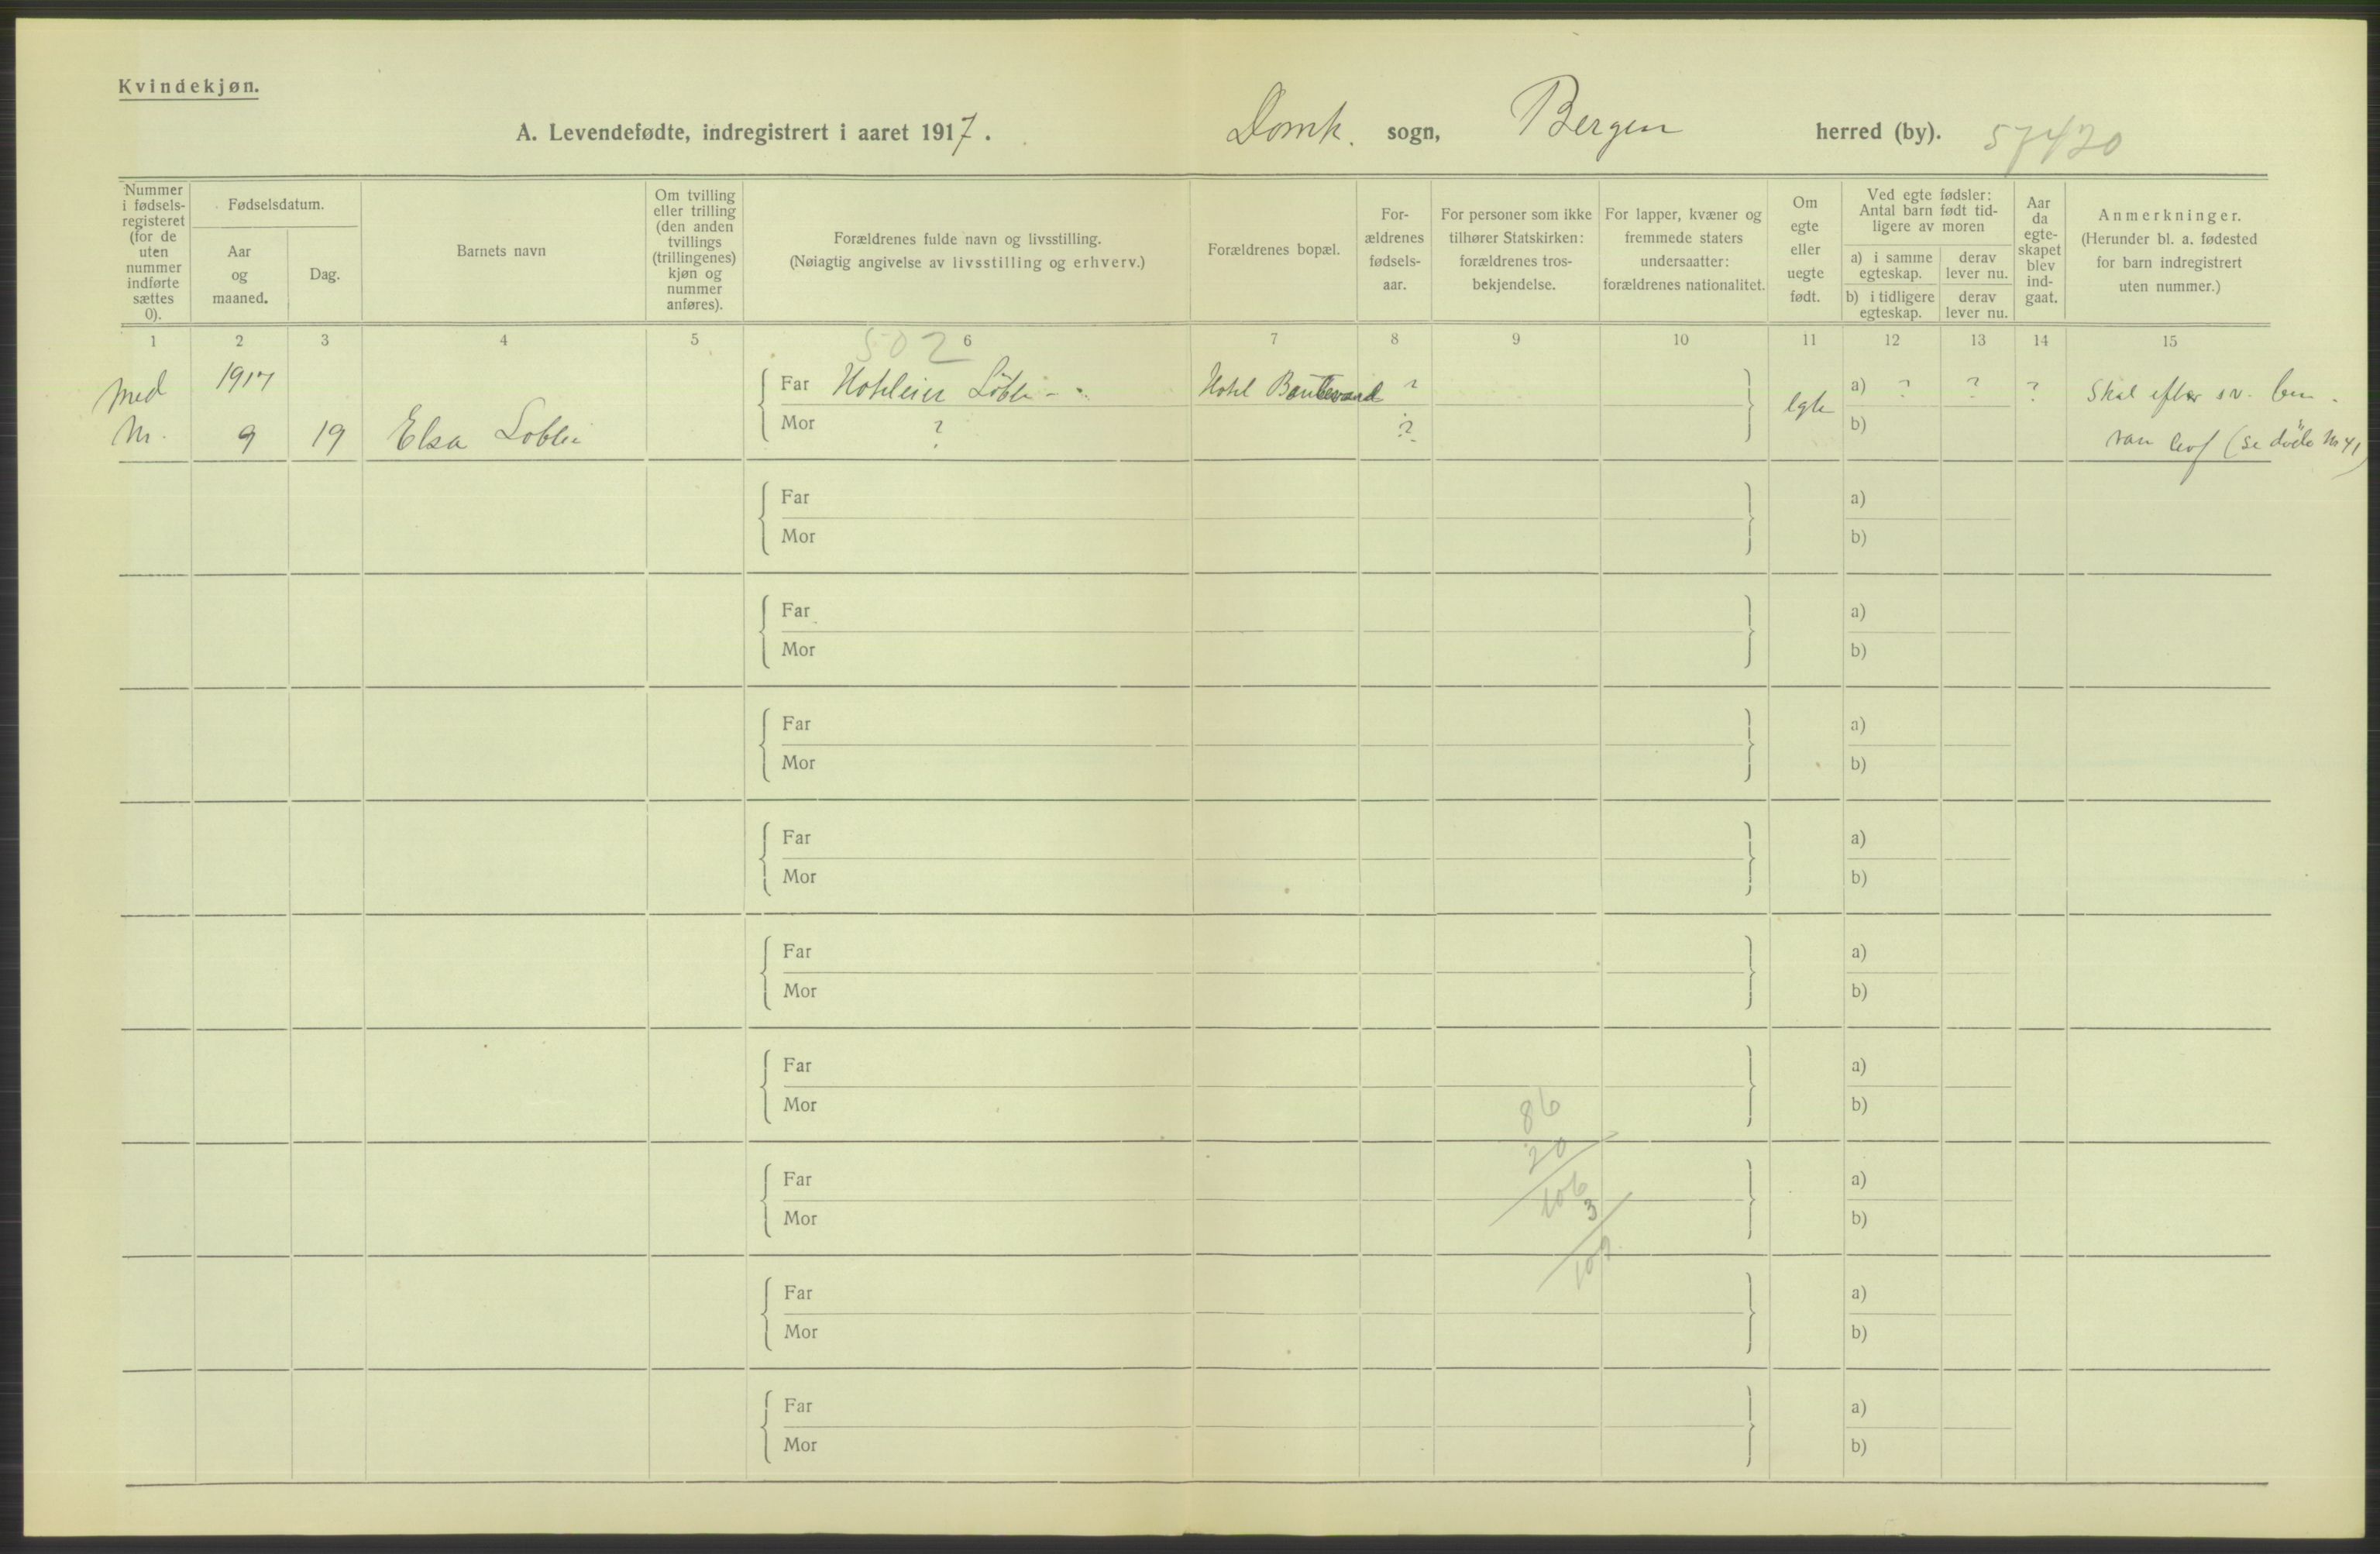 Kvindekjøn.
A. Levendefødte, indregistrert i aaret 1917. Domk. sogn, Bergen herred (by). 57420
Nummer
i fødsels-
registeret
(for de
uten
nummer
indførte
sættes
0).
Fødselsdatum.
Aar
og
maaned.
Dag.
Barnets navn
Om tvilling
eller trilling
(den anden
tvillings
(trillingenes)
kjøn og
nummer
anføres).
Forældrenes fulde navn og livsstilling.
(Nøiagtig angivelse av livsstilling og erhverv.)
Forældrenes bopæl.
For-
ældrenes
fødsels-
aar.
For personer som ikke
tilhører Statskirken:
forældrenes tros-
bekjendelse.
For lapper, kvæner og
fremmede staters
undersaatter:
forældrenes nationalitet.
Om
egte
eller
uegte
født.
Ved egte fødsler:
Antal barn født tid-
ligere av moren
a) i samme
egteskap.
derav
lever nu.
b) i tidligere
egteskap.
derav
lever nu.
Aar
da
egte-
skapet
blev
ind-
gaat.
Anmerkninger.
(Herunder bl. a. fødested
for barn indregistrert
uten nummer.)
1 2 3 4 5 6 7 8 9 10 11 12 13 14 15
502
Med 1917 Far Hotleier Hotel Boulevard ? egte a) ? ? ? Skal efter
Nr. 9 19 Elsa Mor ? ? b) (se døde Nr 41)
Far a)
Mor b)
Far a)
Mor b)
Far a)
Mor b)
Far a)
Mor b)
Far a)
Mor b)
Far a)
Mor b)
86
20
106
3
109
Far a)
Mor b)
Far a)
Mor b)
Far a)
Mor b)